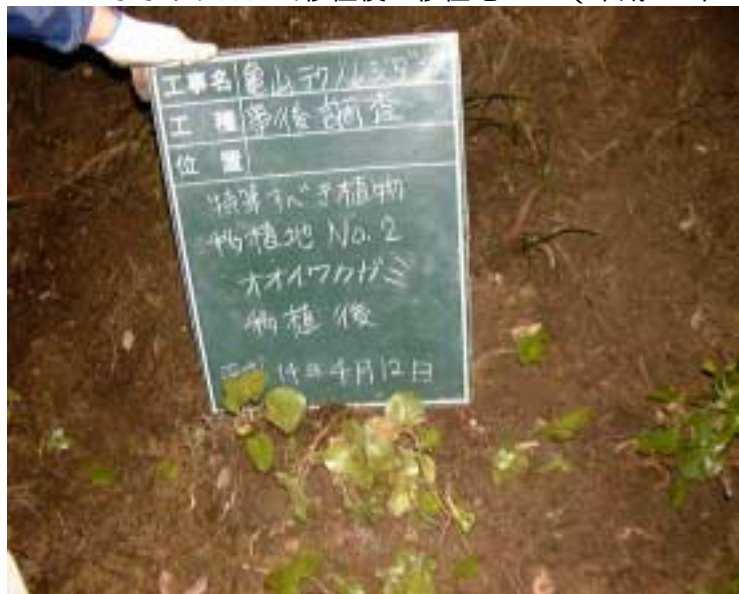 工事名 亀山テクノヒルズ
工種 事後調査
位置
特筆すべき植物
移植地 No.2
オオイワカガミ
移植後
平成14年4月12日